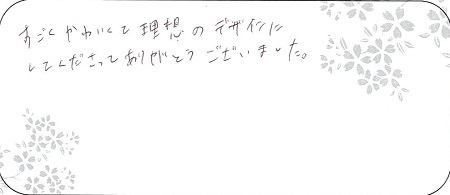 すごくかわいくて理想のデザインに
してくださってありがとうございました。